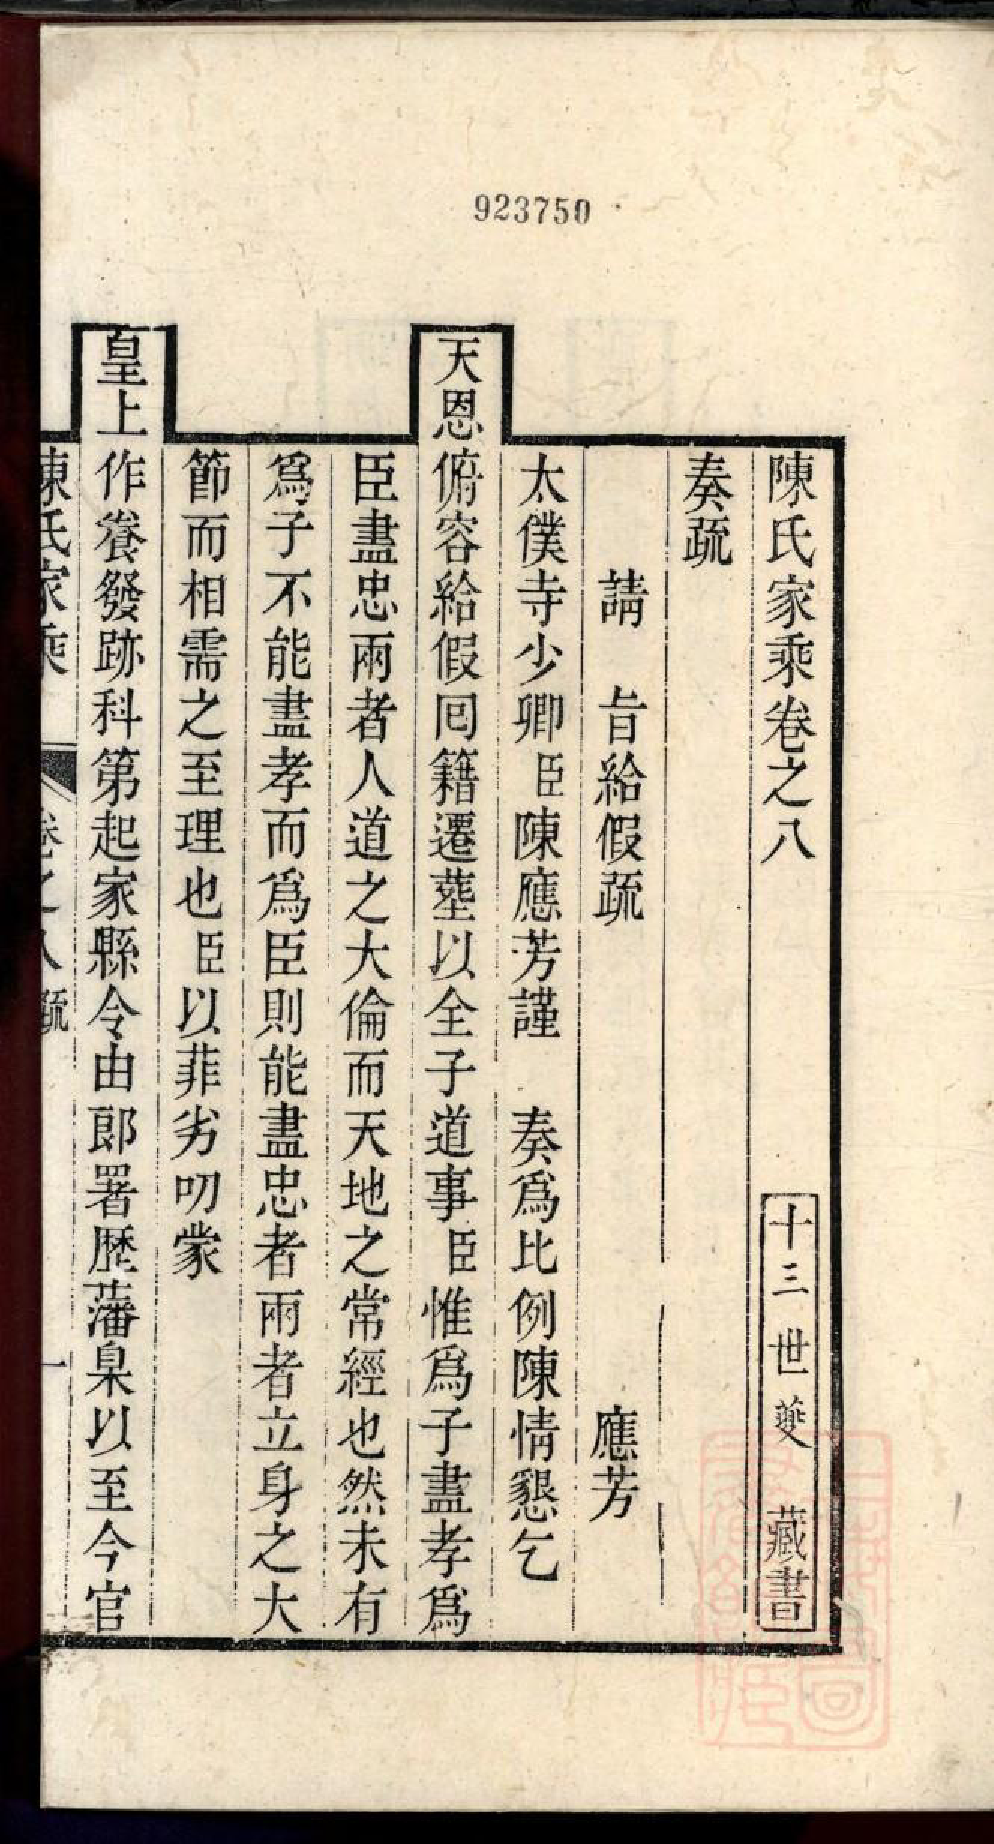 923750
陳氏家乘卷之八
十三世燮 藏書
奏疏
請 旨給假疏 應芳
太僕寺少卿臣陳應芳謹 奏爲比例陳情懇乞
天恩俯容給假回籍遷塟以全子道事臣惟爲子盡孝爲
臣盡忠兩者人道之大倫而天地之常經也然未有
爲子不能盡孝而爲臣則能盡忠者兩者立身之大
節而相需之至理也臣以菲劣叨蒙
皇上作養發跡科第起家縣令由郎署歷藩臬以至今官
陳氏家乘 卷之八 疏 一